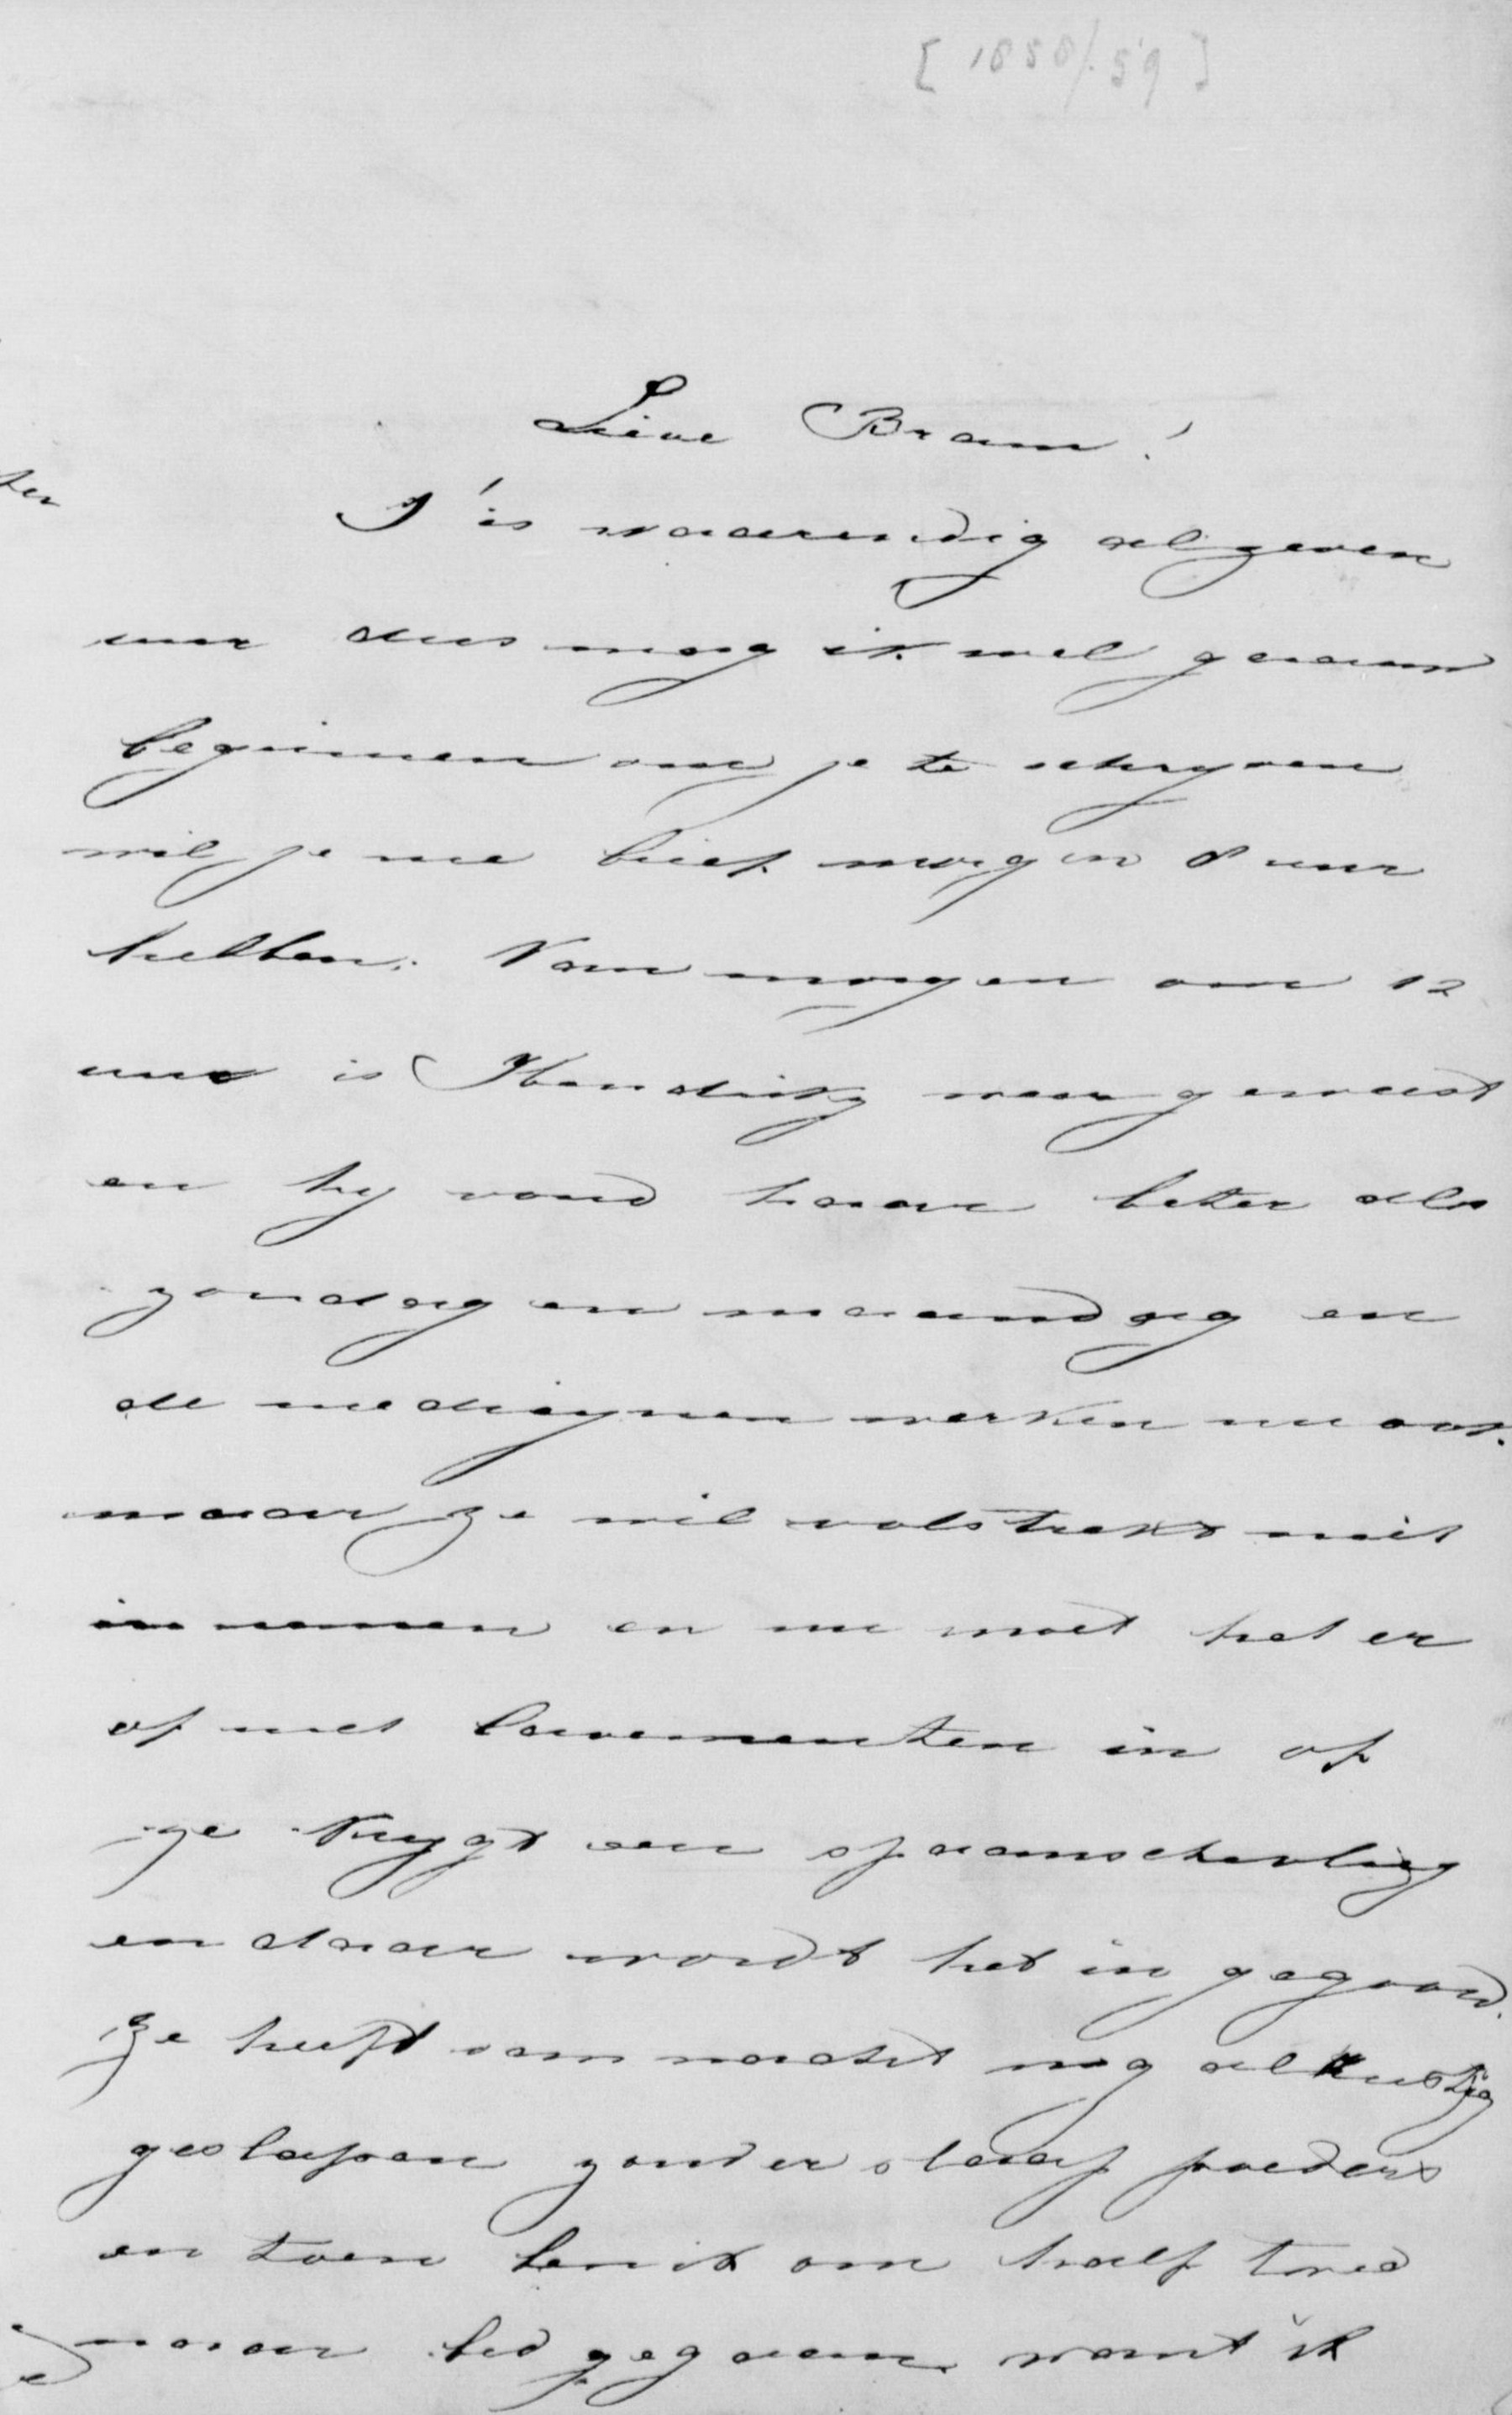 [1858/59]
Lieve Bram!
T' is waarendig al zeven
uur dus mag ik wel gaan
beginnen om je te schryven
wil je me brief morgen 8 uur
hebben. Van morgen om 12
uur is weer geweest
en hy vond haar beter als
zondag en maandag en
de medicynen werken nu ook.
maar ze wil volstrekt niet
in nemen en nu moet het er
of met lavementen in of
ze krygt een
en daar wordt het in gegooid.
Ze heeft van nacht nog al rustig
geslapen zonder slaap poeders
en toen ben ik om half twee
naar bed gegaan want ik